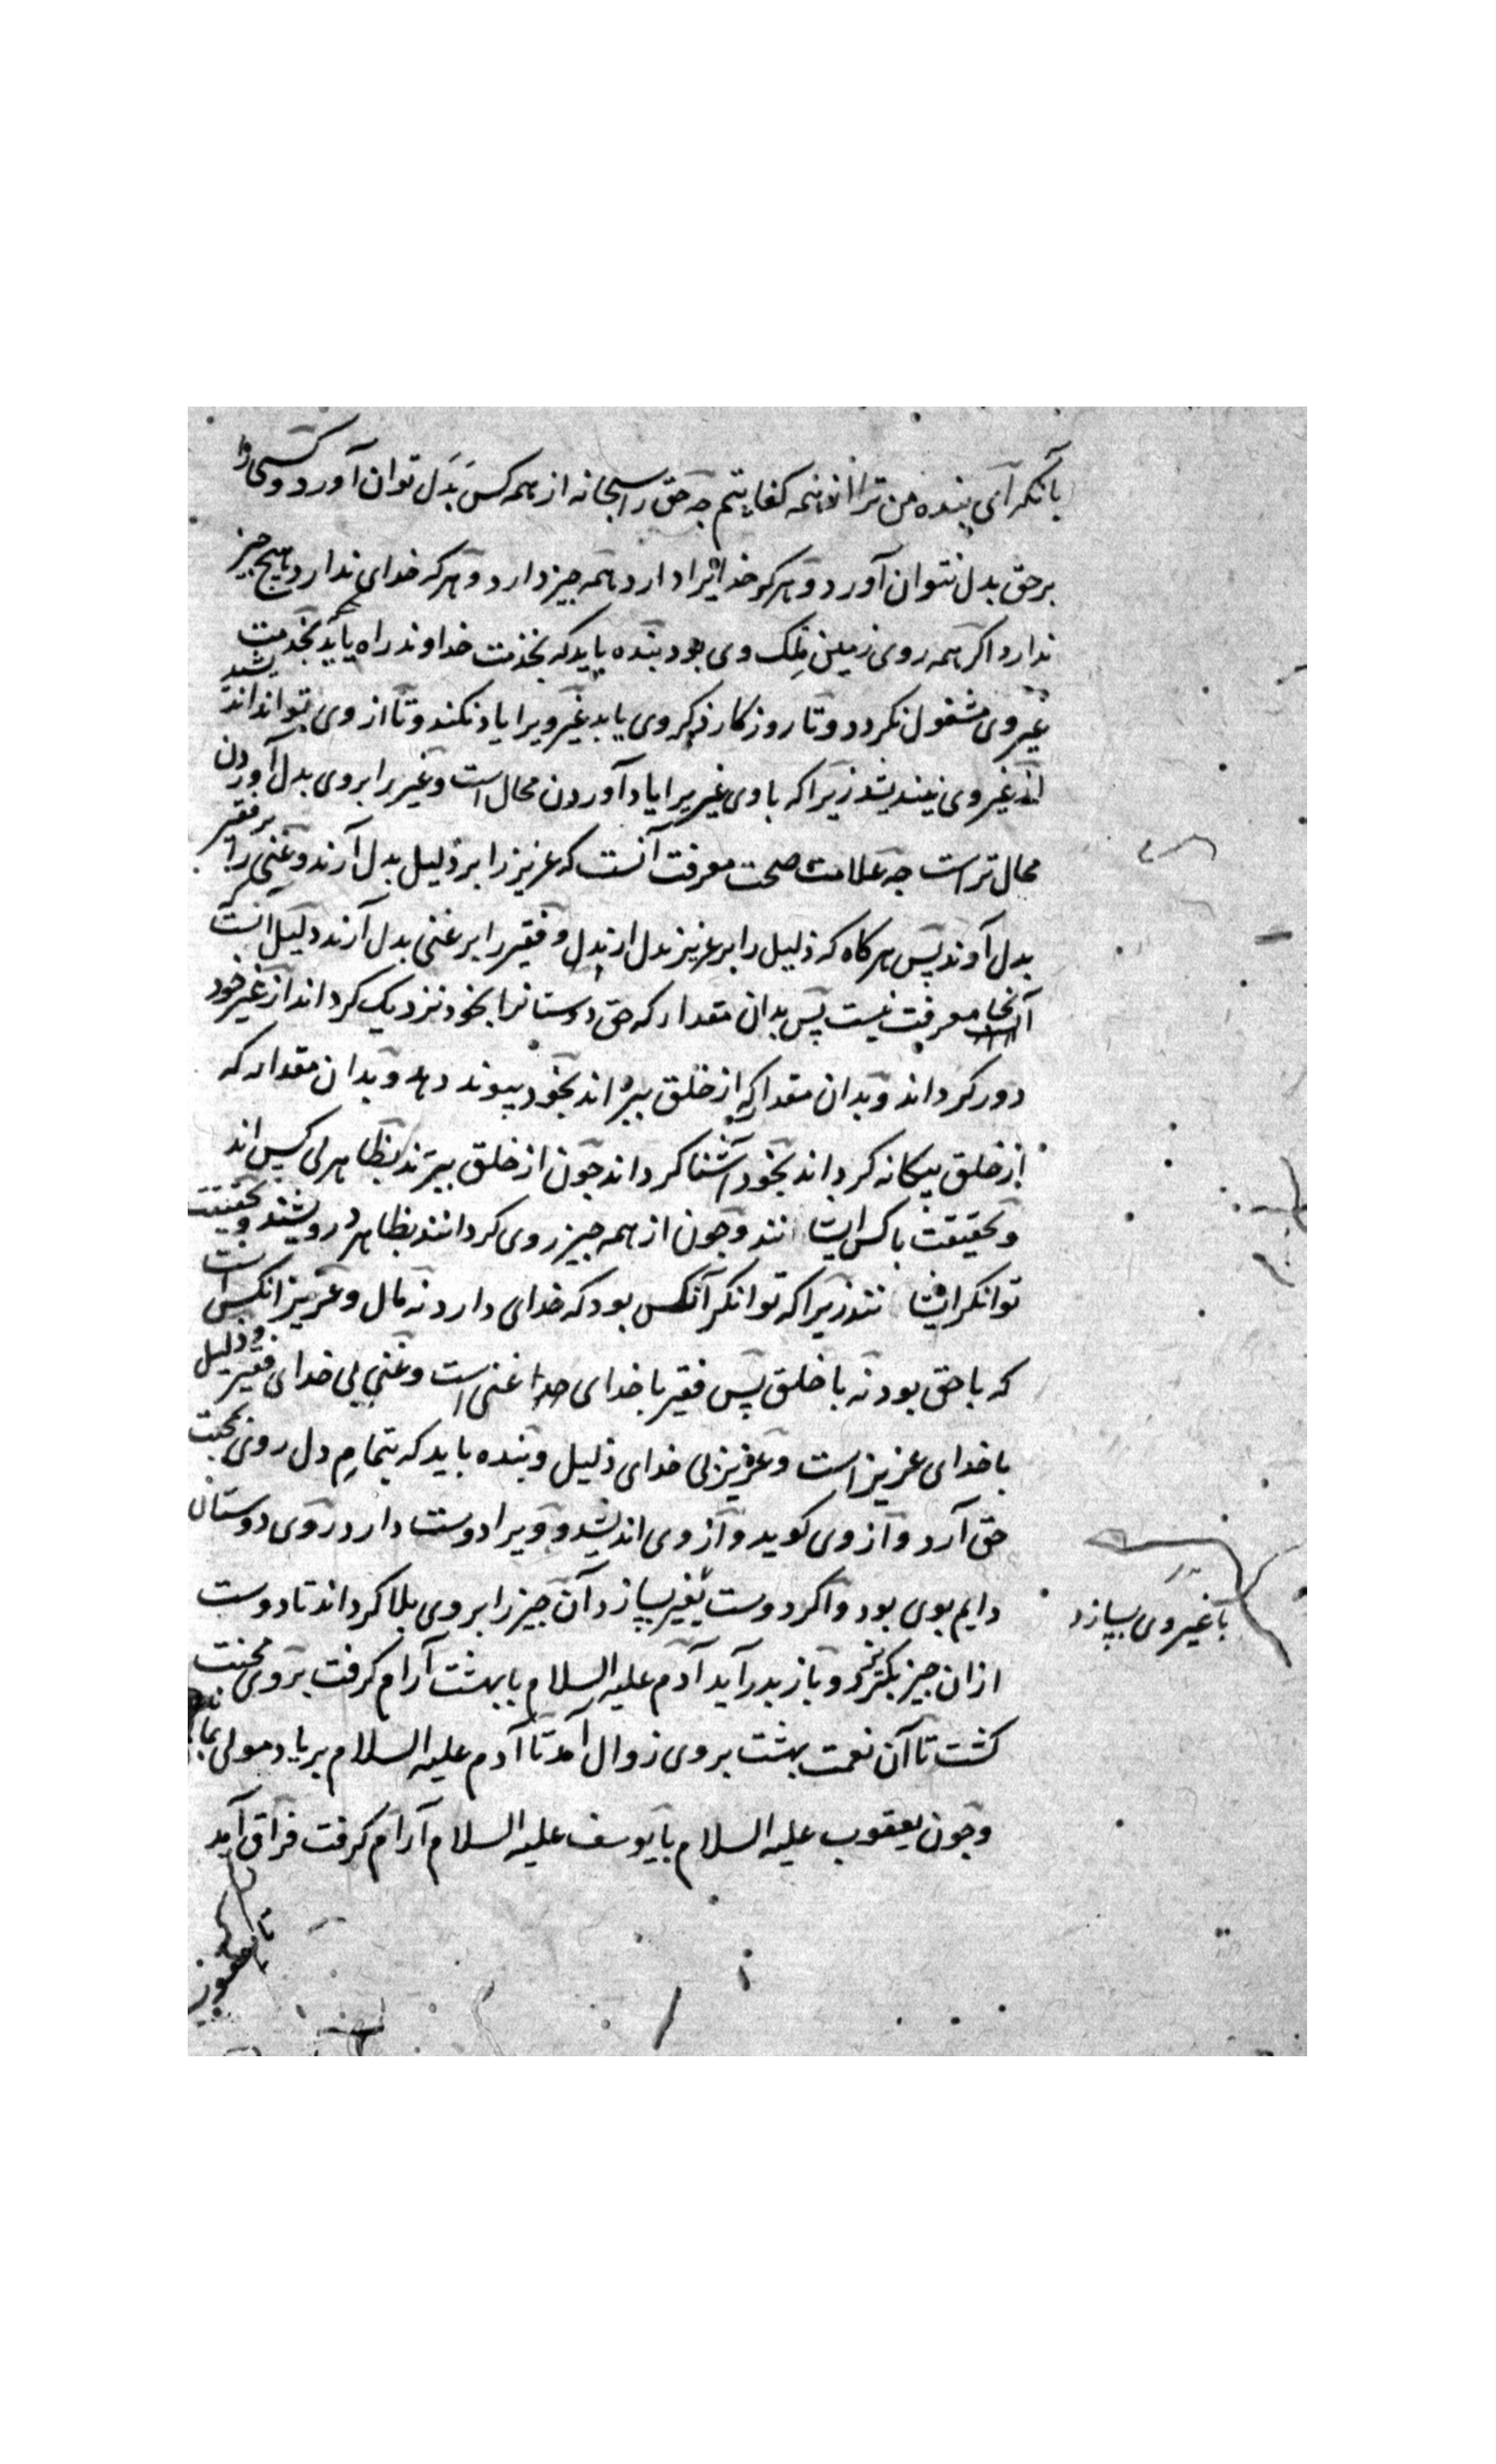 بانکه آی بنده من ترا از همه کفایتم چه حق را سبحانه از همه کس بَدَل توان آورد و کسی را
بر حق بدل نتوان آورد و هر که خدایرا دارد همه چیز دارد و هر که خدای ندارد هیچ چیز
ندارد اکر همه روی زمین مِلک وی بود بنده باید که بخذمت خداوند راه یابد بخدمت
غیر وی مشغول نکردد و تا روزکار ذکر وی یابد غیر ویرا یاد نکند و تا از وی تواند اندیشید
از غیر وی نیندیشد زیرا که با وی غیریرا یاد آوردن محال است و غیریرا بر وی بدل آوردن
محال تر است چه علامت صحت معرفت آنست که عزیز را بر ذلیل بدل آرند و غنی را بر فقیر
بدل آرند پس هر کاه که ذلیل را بر عزیز بدل ارند و فقیر را بر غنی بدل آرند دلیل انست
آنجا معرفت نیست پس بدان مقدار که حق دوستانرا بخود نزدیک کرداند از غیر خود
دور کرداند و بدان مقدار که از خلق ببراند بخود پیوند دهد و بدان مقدار که
از خلق بیکانه کرداند بخود آشنا کرداند چون از خلق ببرند بظاهر بی کس اند
و بحقیقت با کس ایشانند و چون از همه چیز روی کردانند بظاهر درویشند و بحقیقت
توانکر ایشانند زیرا که توانکر آنکس بود که خدای دارد نه مال و عزیز انکس است
که با حق بود نه با خلق پس فقیر با خدای غنی است و غنی بی خدای فقیر و ذلیل
با خدای عزیز است و عزیز بی خدای ذلیل و بنده باید که بتمامِ دل روی بمحبت
حق آرد و از وی کوید و از وی اندیشد و ویرا دوست دارد روی دوستان
دایم بوی بود و اکر دوست بغیر بسازد آن چیز را بر وی بلا کرداند تا دوست
با غیر وی بسازد
ازان چیز بکریزد و باز بدر آید آدم علیه السلام با بهشت آرام کرفت بر وی محنت
کشت تا آن نعمت بهشت بر وی زوال آمد تا آدم علیه السلام بر یاد مولی بماند
و چون یعقوب علیه السلام با یوسف علیه السلام آرام کرفت فراق آمد